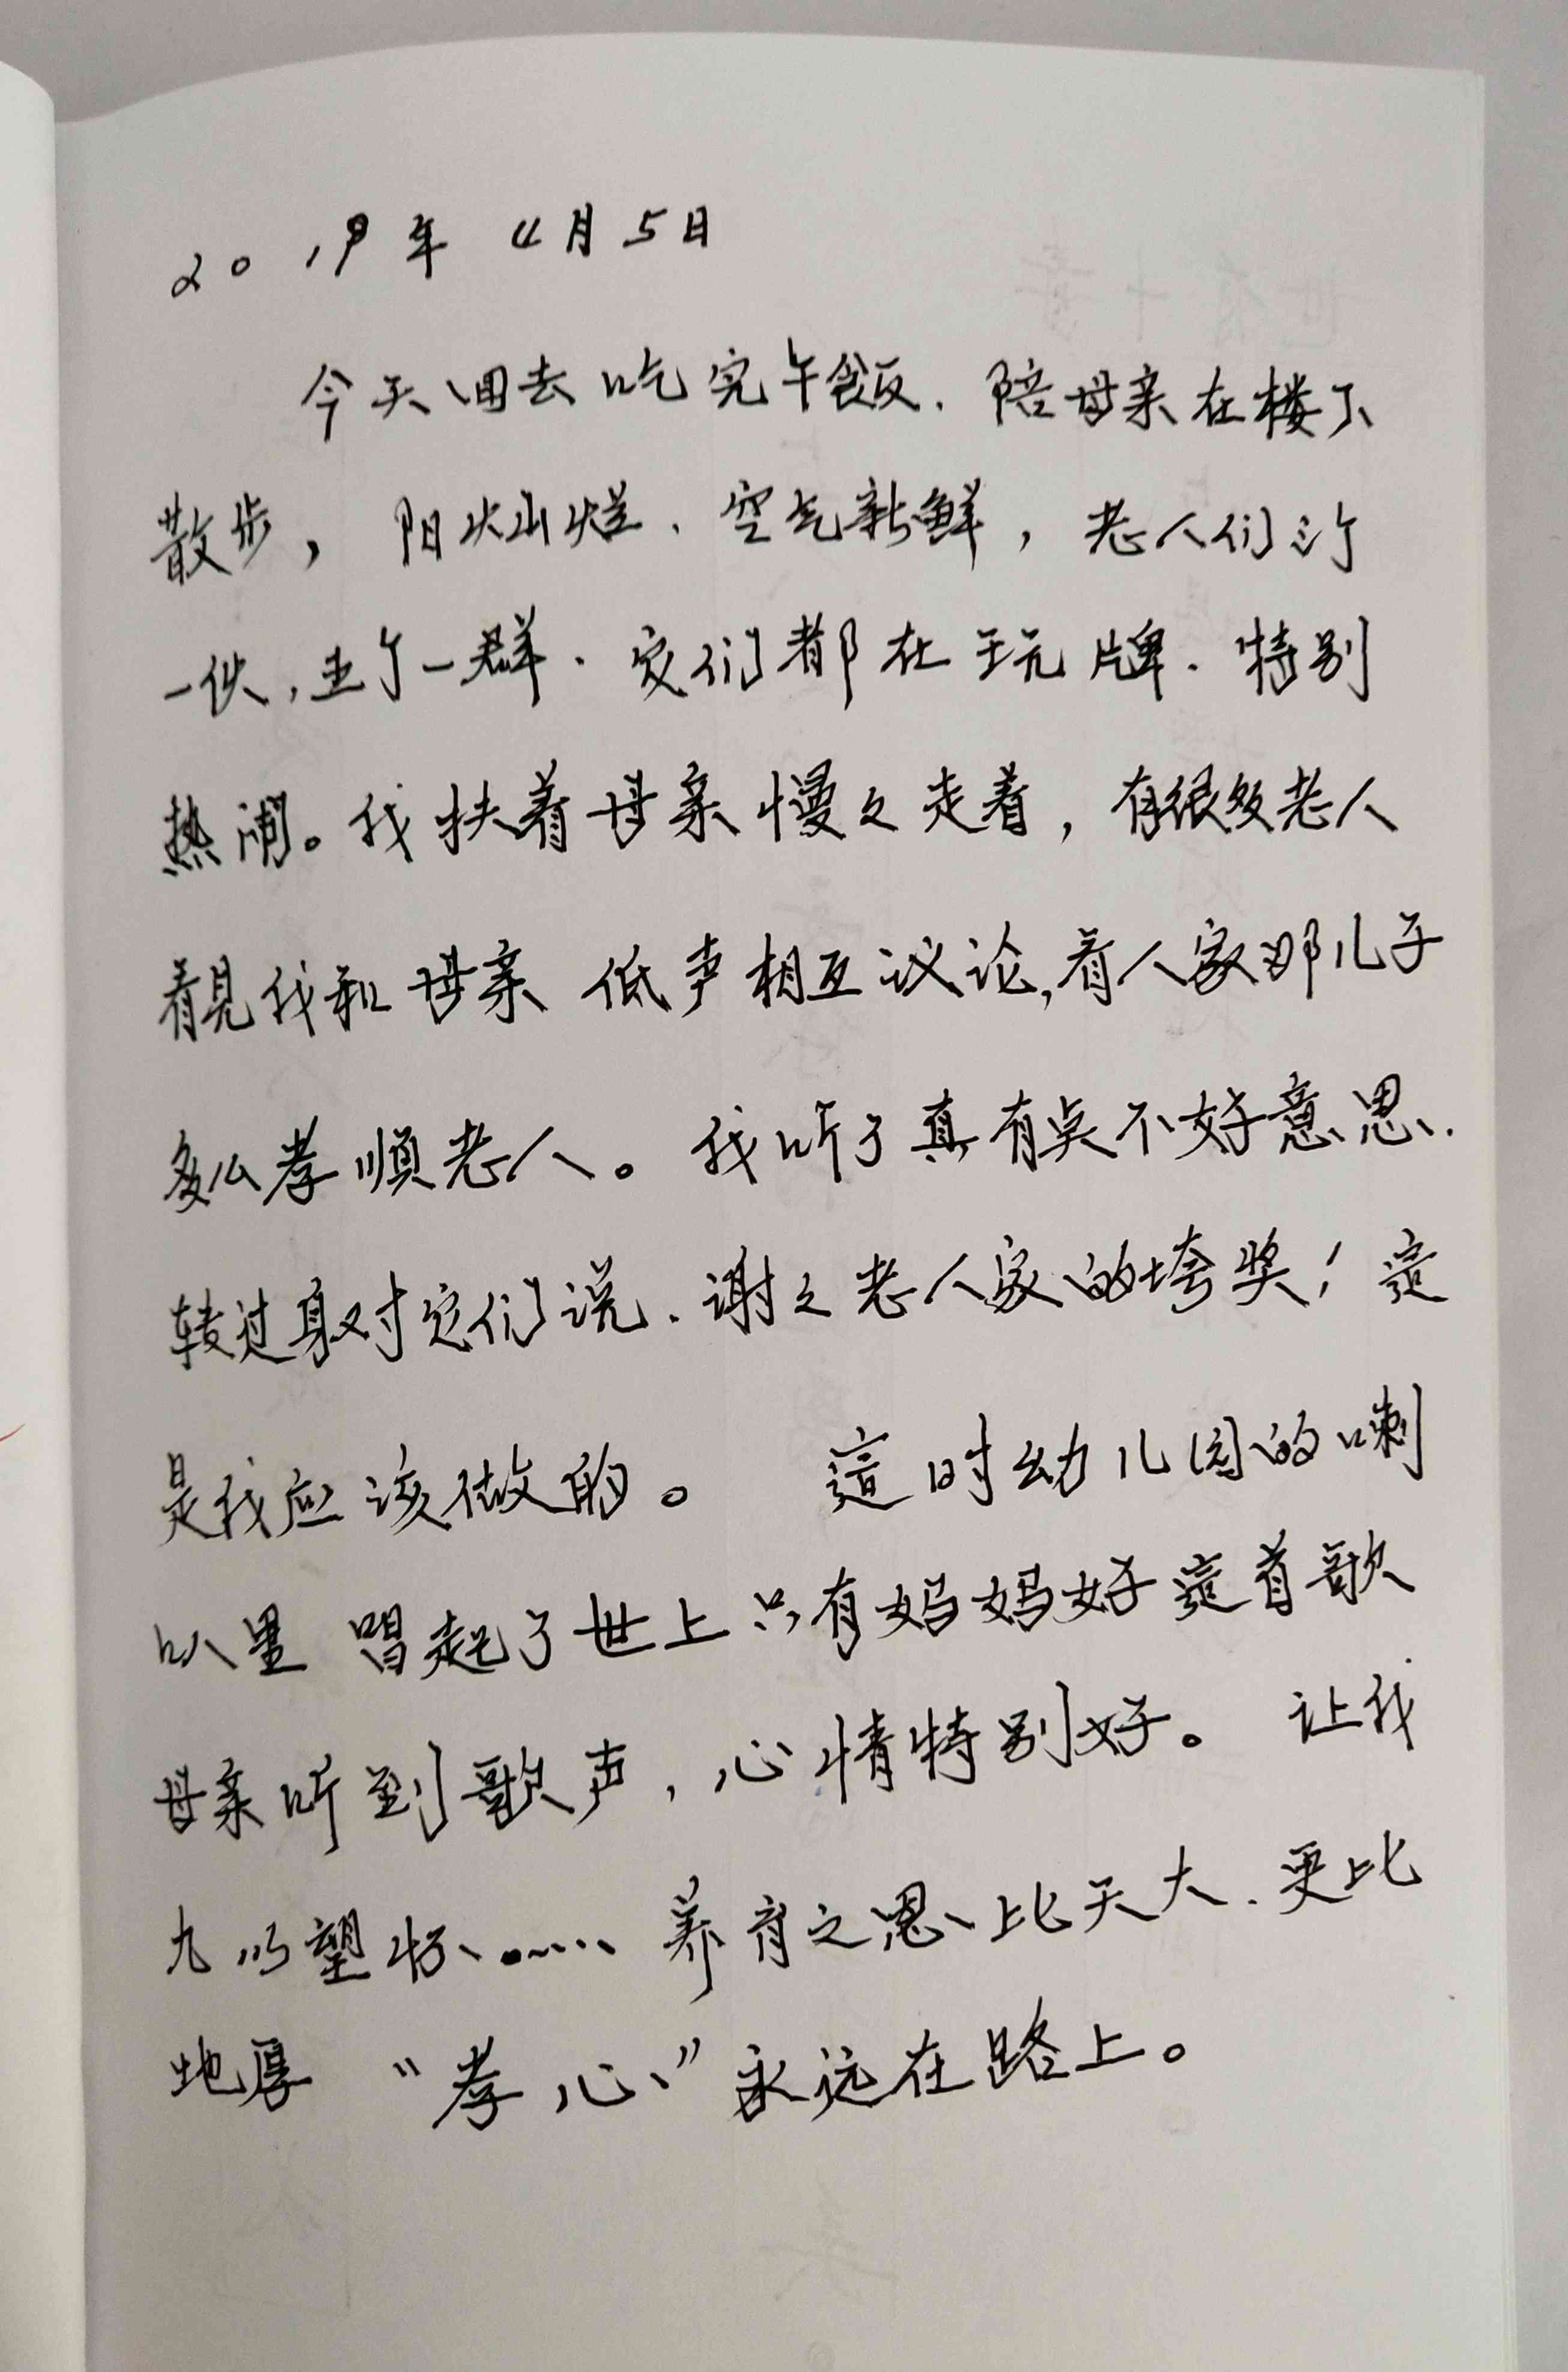 2019年 4月5日
今天回去吃完午飯、陪母亲在楼下
散步，阳火山烂、空气新鲜，老人们三个
一伙，五个一群、它们都在玩牌、特别
热闹。我扶着母亲慢々走着，有很多老人
看见我和母亲 低声相互议论，看人家那儿子
多么孝顺老人。我听了真有点不好意思、
转过身对它们说、谢々老人家的垮奖！这
是我应该做的。 这时幼儿园的喇
叭里 唱起了世上只有妈妈好这首歌
母亲听到歌声，心情特别好。 让我
养育之恩比天大、更比
地厚 “孝心” 永远在路上。